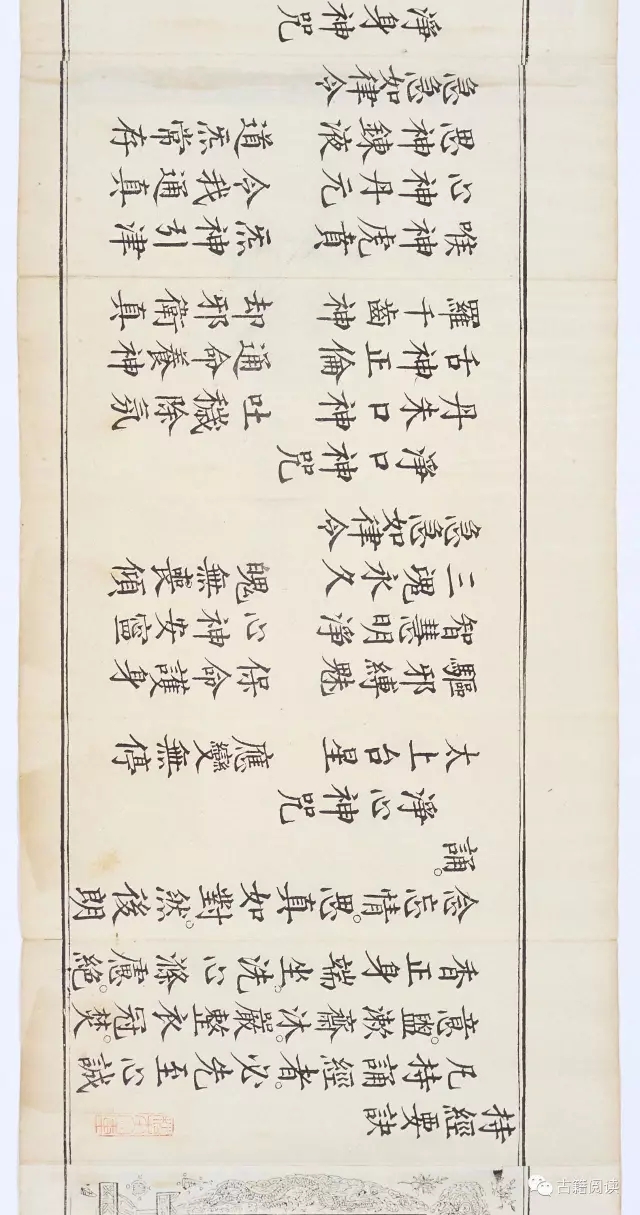 持經要訣
凡持誦經者。必先至心誠
意。盥漱齋沐。嚴整衣冠。焚
香正身端坐。洗心滌慮。絶
念忘情。思真如對。然後朗
誦。
淨心神咒
太上台星 應變無停
驅邪縛魅 保命護身
智慧明淨 心神安寧
三魂永久 魄無喪傾
急急如律令
淨口神咒
丹朱口神 吐穢除氛
舌神正倫 通命養神
羅千齒神 却邪衛真
喉神虎賁 炁神引津
心神丹元 令我通真
思神鍊液 道炁常存
急急如律令
淨身神咒
古籍阅读